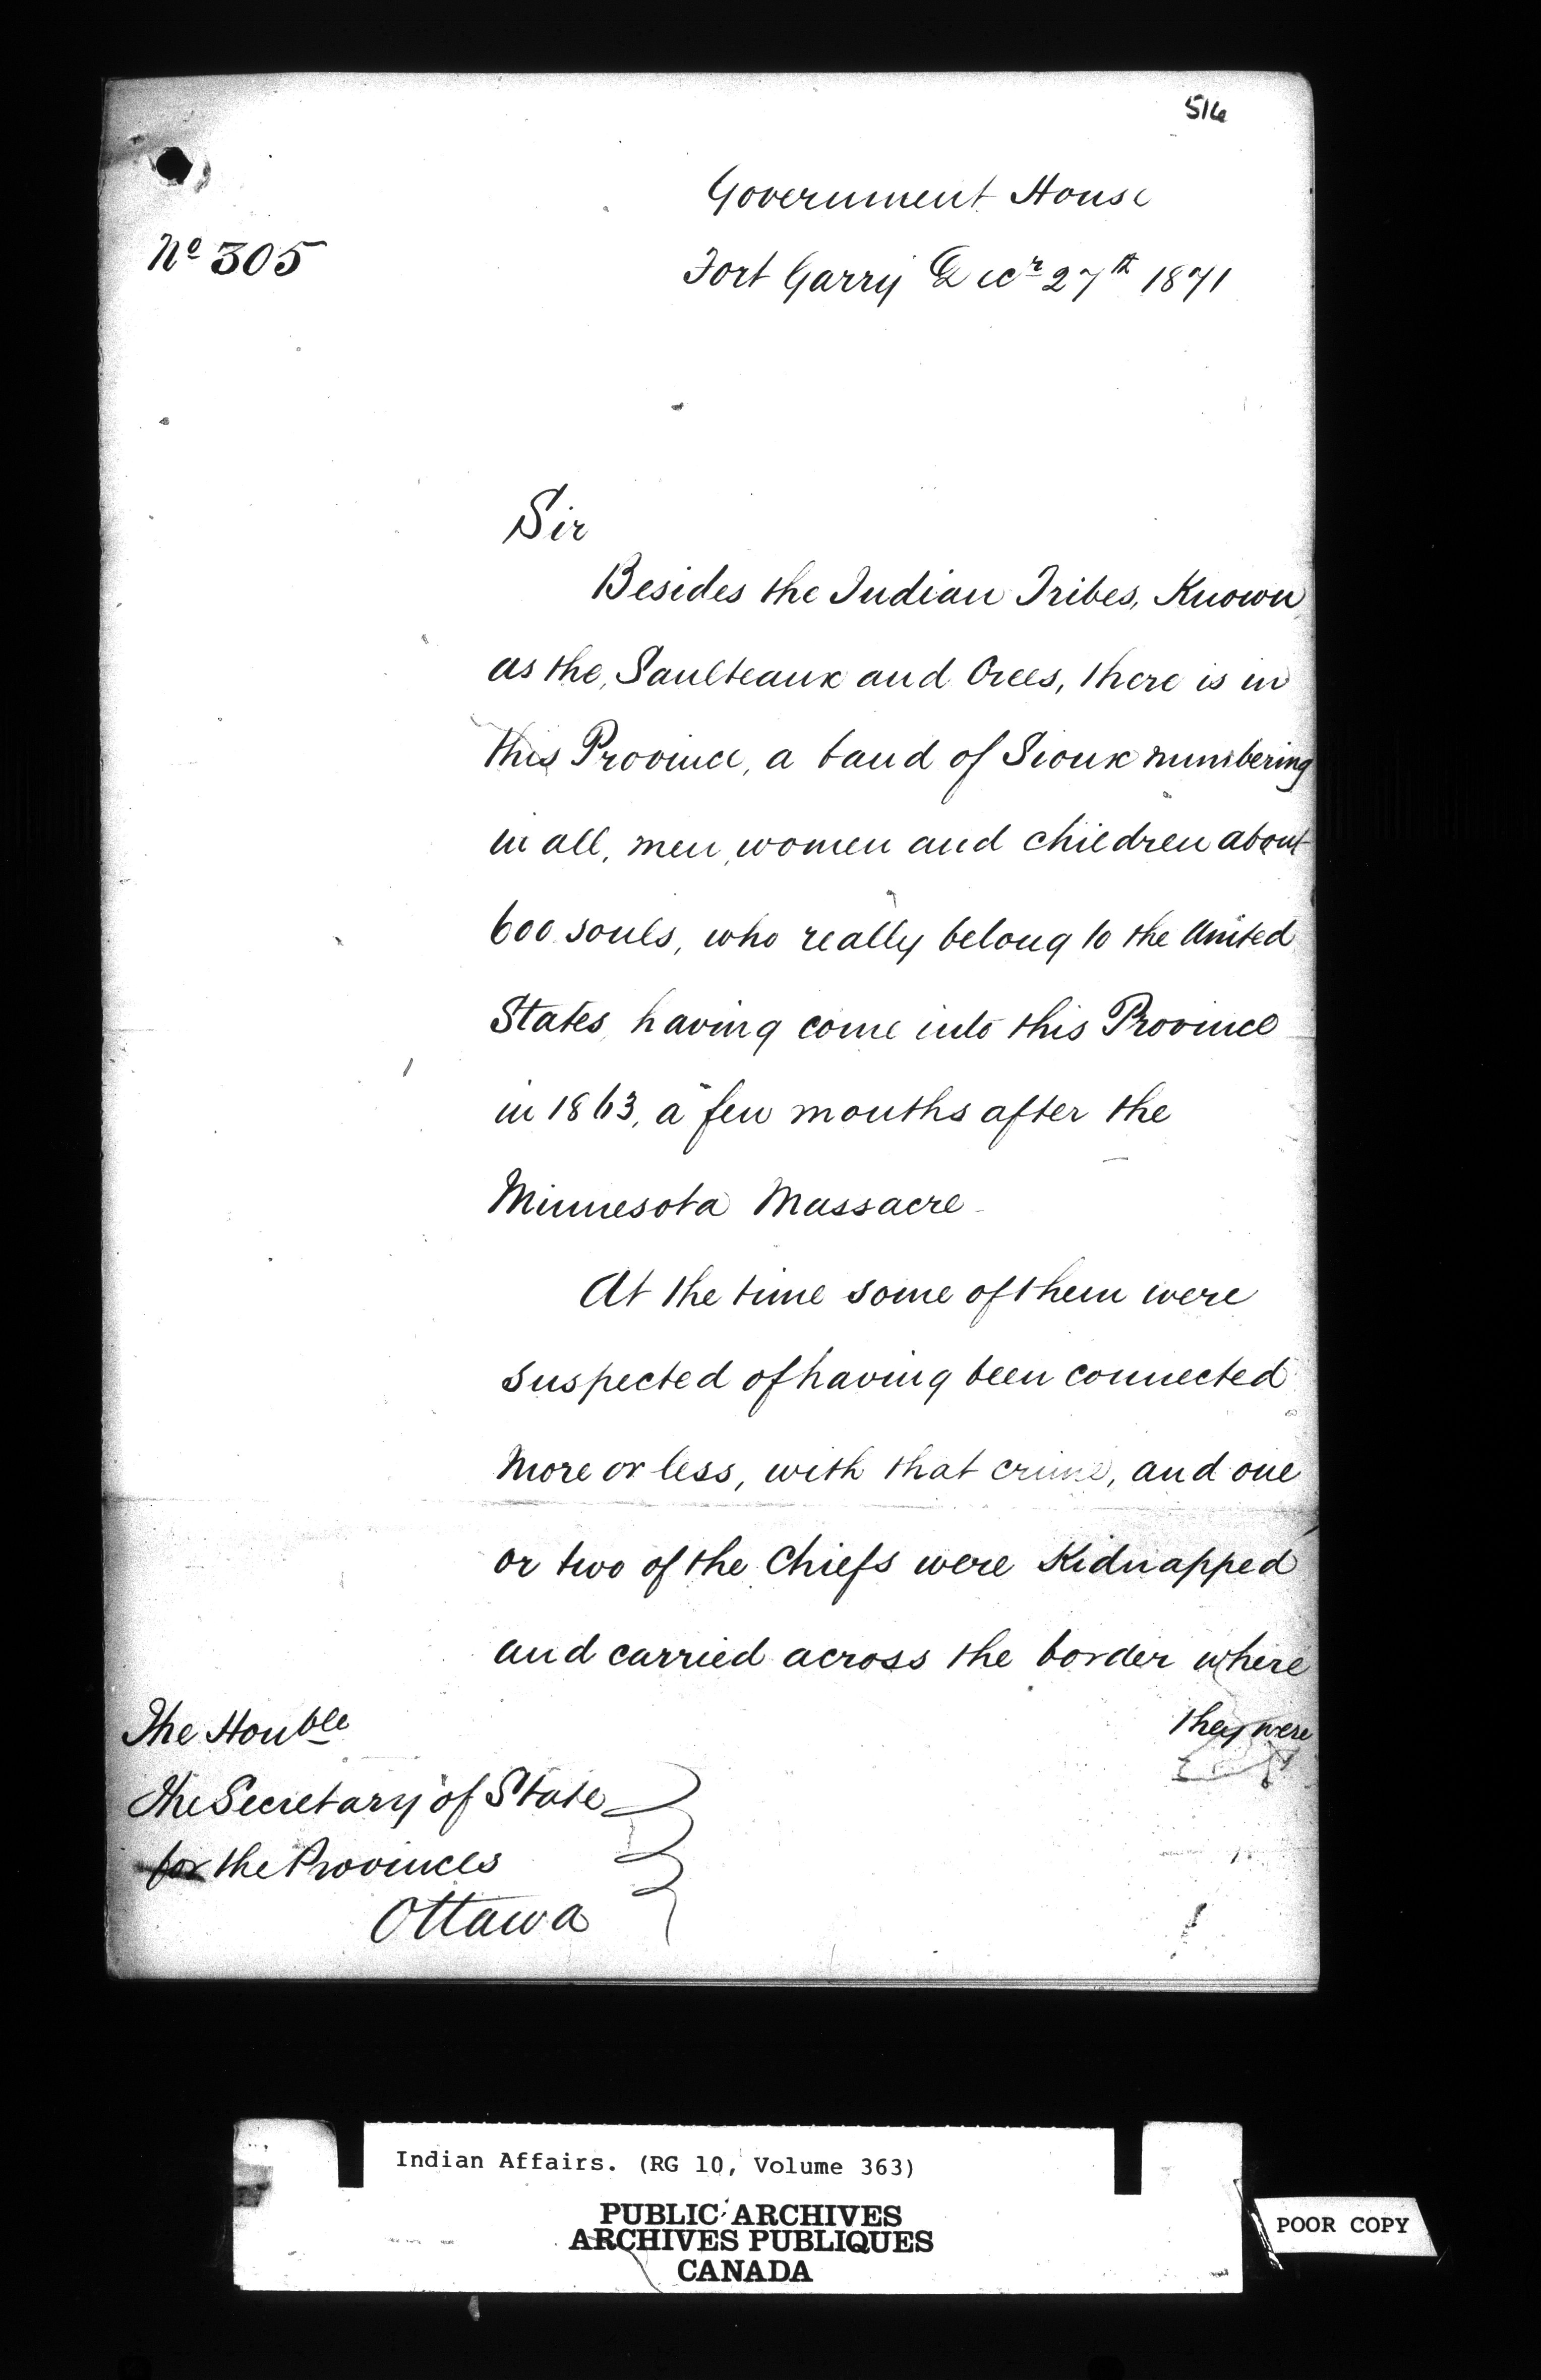 516
Government House
Nº 305
Fort Garry Decr 27th 1871
Sir
Besides the Indian Tribes, Known
as the, Saulteaux and Crees, there is in
this Province, a band of Sioux numbering
in all, men, women and children about
600 souls, who really belong to the United
States, having come into this Province
in 1863, a few months after the
Minnesota Massacre
At the time some of them were
suspected of having been connected
more or less, with that crime, and one
or two of the Chiefs were Kidnapped
and carried across the border where
they were
The Honble
the Secretary of State
for the Provinces
Ottawa
Indian Affairs. (RG 10, Volume 363)
PUBLIC ARCHIVES
ARCHIVES PUBLIQUES
CANADA
POOR COPY